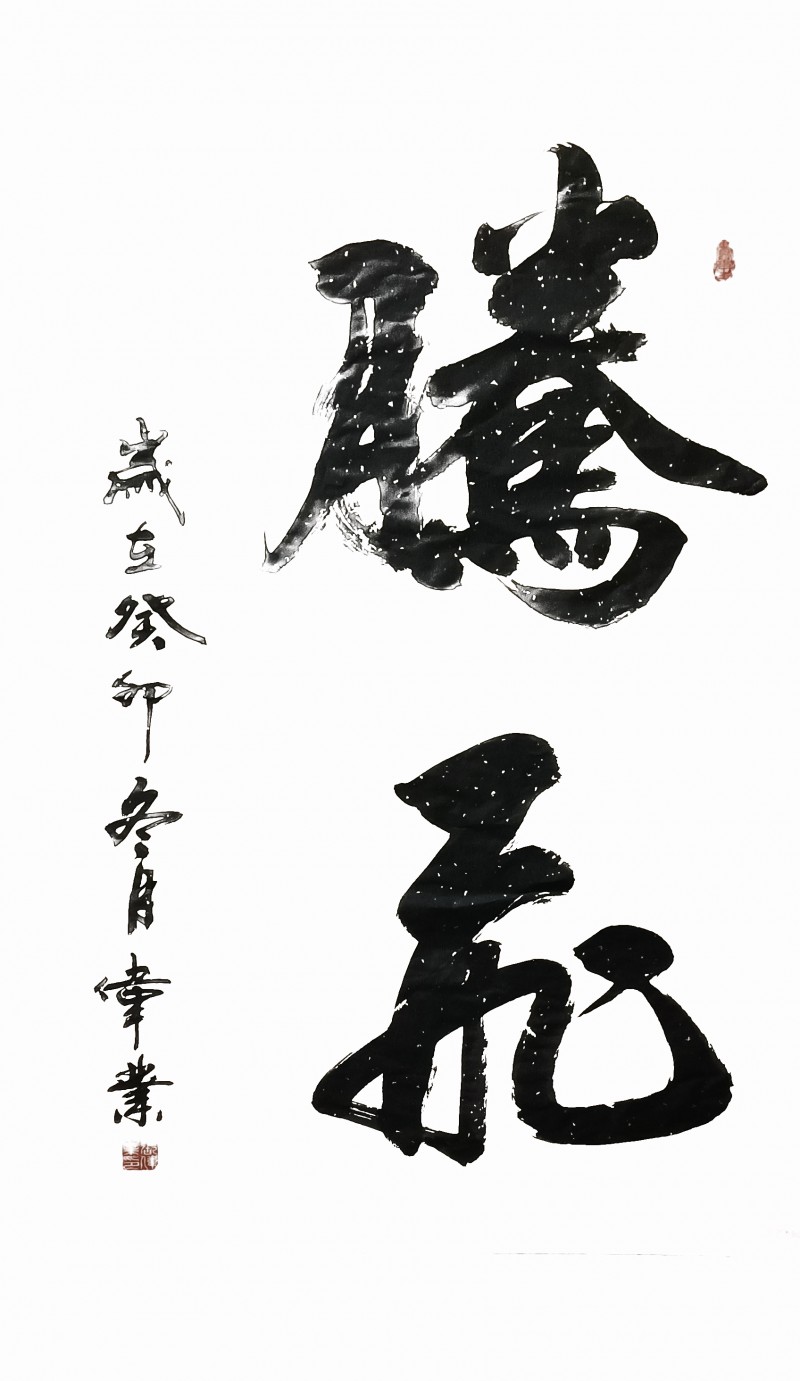 騰飛
歲在癸卯冬月偉業